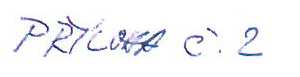 PŘÍLOHA č. 2